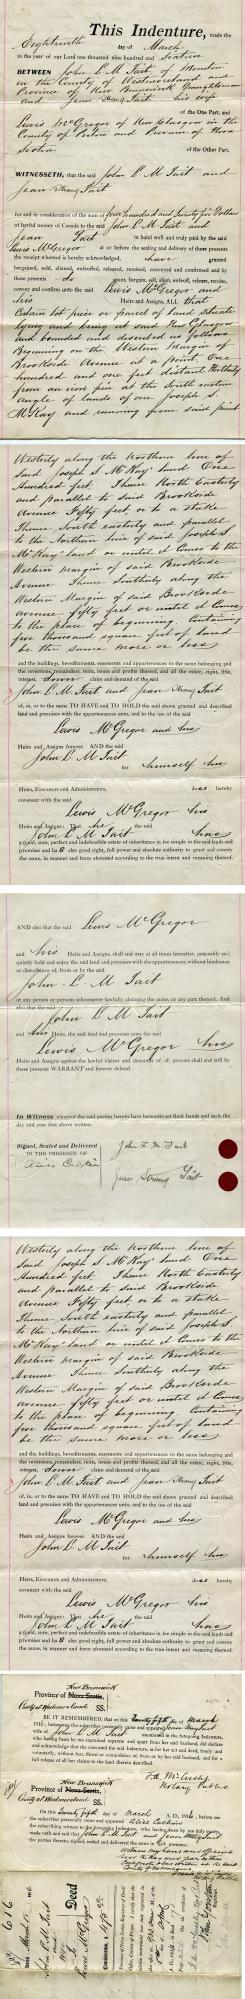 This Indenture, made the
Eighteenth day of March
in the year of our Lord one thousand nine hundred and Sixteen
BETWEEN John L M Tait of Moncton
in the County of Westmoreland and
Province of New Brunswick
and Jean Strang Tait his wife
of the One Part, and
Lewis McGregor of New Glasgow in the
County of Pictou and Province of Nova
Scotia of the Other Part.
WITNESSETH, that the said John L M Tait and
Jean Strang Tait
for and in consideration of the sum of four hundred and Seventy five Dollars
of lawful money of Canada to the said John L M Tait and
Jean Tait in hand well and truly paid by the said
Lewis McGregor at or before the sealing and delivery of these presents
the receipt whereof is hereby acknowledged, have granted
bargained, sold, aliened, enfeoffed, released, remised, conveyed and confirmed and by
these presents do grant, bargain, sell, alien, enfeoff, release, remise,
convey and confirm unto the said Lewis McGregor and
his Heirs and Assigns, ALL that
Certain lot piece or parcel of land situate
lying and being at said New Glasgow
and bounded and described as follows
Beginning on the Western Margin of
Brookside Avenue at a point One
hundred and one feet distant Northerly
from an iron pin at the South eastern
angle of lands of one Joseph S.
McKay and running from said point
Westerly along the Northern line of
Said Joseph S. McKay land One
Hundred feet. Thence North Easterly
and parallel to said Brookside
Avenue Fifty feet or to a stake
Thence South easterly and parallel
to the Northern line of said Joseph S.
McKay land or until it Comes to the
Western margin of said Brookside
Avenue Thence Southerly along the
Western Margin of said Brookside
avenue fifty feet or until it Comes
to the place of beginning. Containing
five thousand square feet of land
be the same more or less
and the buildings, hereditaments, easements and appurtenances to the same belonging and
the reversions, remainders, rents, issues and profits thereof, and all the estate, right, title,
interest, dower claim and demand of the said
John L. M. Tait and Jean Strang Tait
of, in, or to the same TO HAVE and TO HOLD the said above granted and described
land and premises with the appurtenances, unto and to the use of the said
Lewis McGregor and his
Heirs and Assigns forever. AND the said
John L M Tait
for himself his
Heirs, Executors and Administrators, does hereby
covenant with the said
Lewis McGregor his
Heirs and Assigns: That he the said
John L M Tait has
a good, sure, perfect and indefeasible estate of inheritance in fee simple in the said lands and
premises and has good right, full power and absolute authority to grant and convey
the same, in manner and form aforesaid according to the true intent and meaning thereof.
AND also that the said Lewis McGregor
and his Heirs and Assigns, shall and may at all times hereafter, peaceably and
quietly hold and enjoy the said land and premises with the appurtenances, without hindrance
or disturbance of, from or by the said
John L. M Tait
or any person or persons whomsoever lawfully claiming the same, or any part thereof. And
also that the said
John L M Tait
and his Heirs, the said land and premises unto the said
Lewis McGregor his
Heirs and Assigns against the lawful claims and demands of all persons shall and will by
these presents WARRANT and forever defend
In Witness whereof the said parties hereto have hereunto set their hands and seals the
day and year first above written.
Signed, Sealed and Delivered
IN THE PRESENCE OF
John L M Tait
Jean Strang Tait
Westerly along the Northern line of
Said Joseph S. McKay land One
Hundred feet. Thence North Easterly
and parallel to said Brookside
Avenue Fifty feet or to a stake
Thence South easterly and parallel
to the Northern line of said Joseph S.
McKay land or until it Comes to the
Western margin of said Brookside
Avenue Thence Southerly along the
Western Margin of said Brookside
avenue fifty feet or until it Comes
to the place of beginning. Containing
five thousand square feet of land
be the same more or less
and the buildings, hereditaments, easements and appurtenances to the same belonging and
the reversions, remainders, rents, issues and profits thereof, and all the estate, right, title,
interest, dower claim and demand of the said
John L. M. Tait and Jean Strang Tait
of, in, or to the same TO HAVE and TO HOLD the said above granted and described
land and premises with the appurtenances, unto and to the use of the said
Lewis McGregor and his
Heirs and Assigns forever. AND the said
John L M Tait
for himself his
Heirs, Executors and Administrators, does hereby
covenant with the said
Lewis McGregor his
Heirs and Assigns: That he the said
John L M Tait has
a good, sure, perfect and indefeasible estate of inheritance in fee simple in the said lands and
premises and has good right, full power and absolute authority to grant and convey
the same, in manner and form aforesaid according to the true intent and meaning thereof.
New Brunswick
Province of Nova Scotia,
County of Westmoreland SS.
BE IT REMEMBERED, that on this Twenty fifth day of March
1916, before me, the subscriber personally came and appeared Jean Strang Tait
wife of John L M Tait mentioned in the foregoing Indenture,
who having been by me examined separate and apart from her said husband, did declare
and acknowledge that she executed the said Indenture, as her act and deed, freely and
voluntarily, without fear, threat or compulsion, of, from or by her said husband, and for a
full release of all her claims to the lands therein described.
Notary Public
New Brunswick
Province of Nova Scotia,
County of Westmoreland SS.
On this Twenty fifth day of March A. D., 1916, before me, the
subscriber personally came and appeared
the subscribing witness to the foregoing Indenture, who having been by me duly sworn,
made oath and said that John L M Tait and Jean Strang Tait
the parties thereto, signed, sealed and delivered the same in h presence.
616
Deed
John L M Tait
to
Lewis McGregor
Consideration, $ 475.00